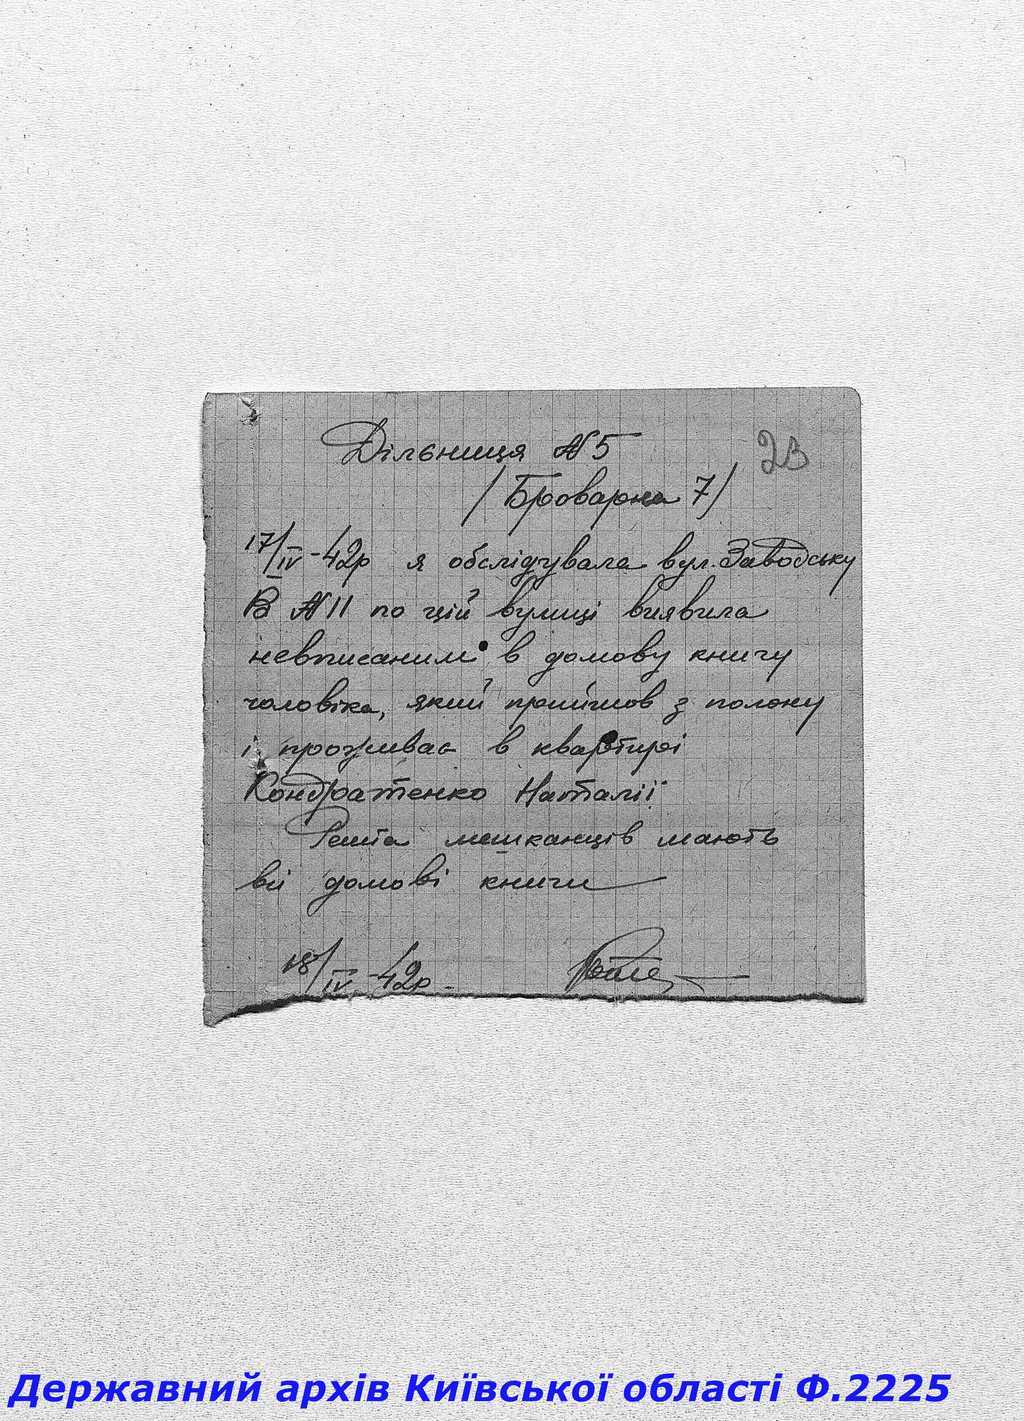 Дільниця №5
23
/Броварна 7/
17/IV-42р я обслідувала вул. Заводську
В №11 по цій вулиці виявила
невписаним в домову книгу
чоловіка, який прийшов з полону
і проживає в квартирі
Кондратенко Наталії.
Решта мешканців мають
всі домові книги
18/IV-42р.
Державний архів Київської області Ф.2225